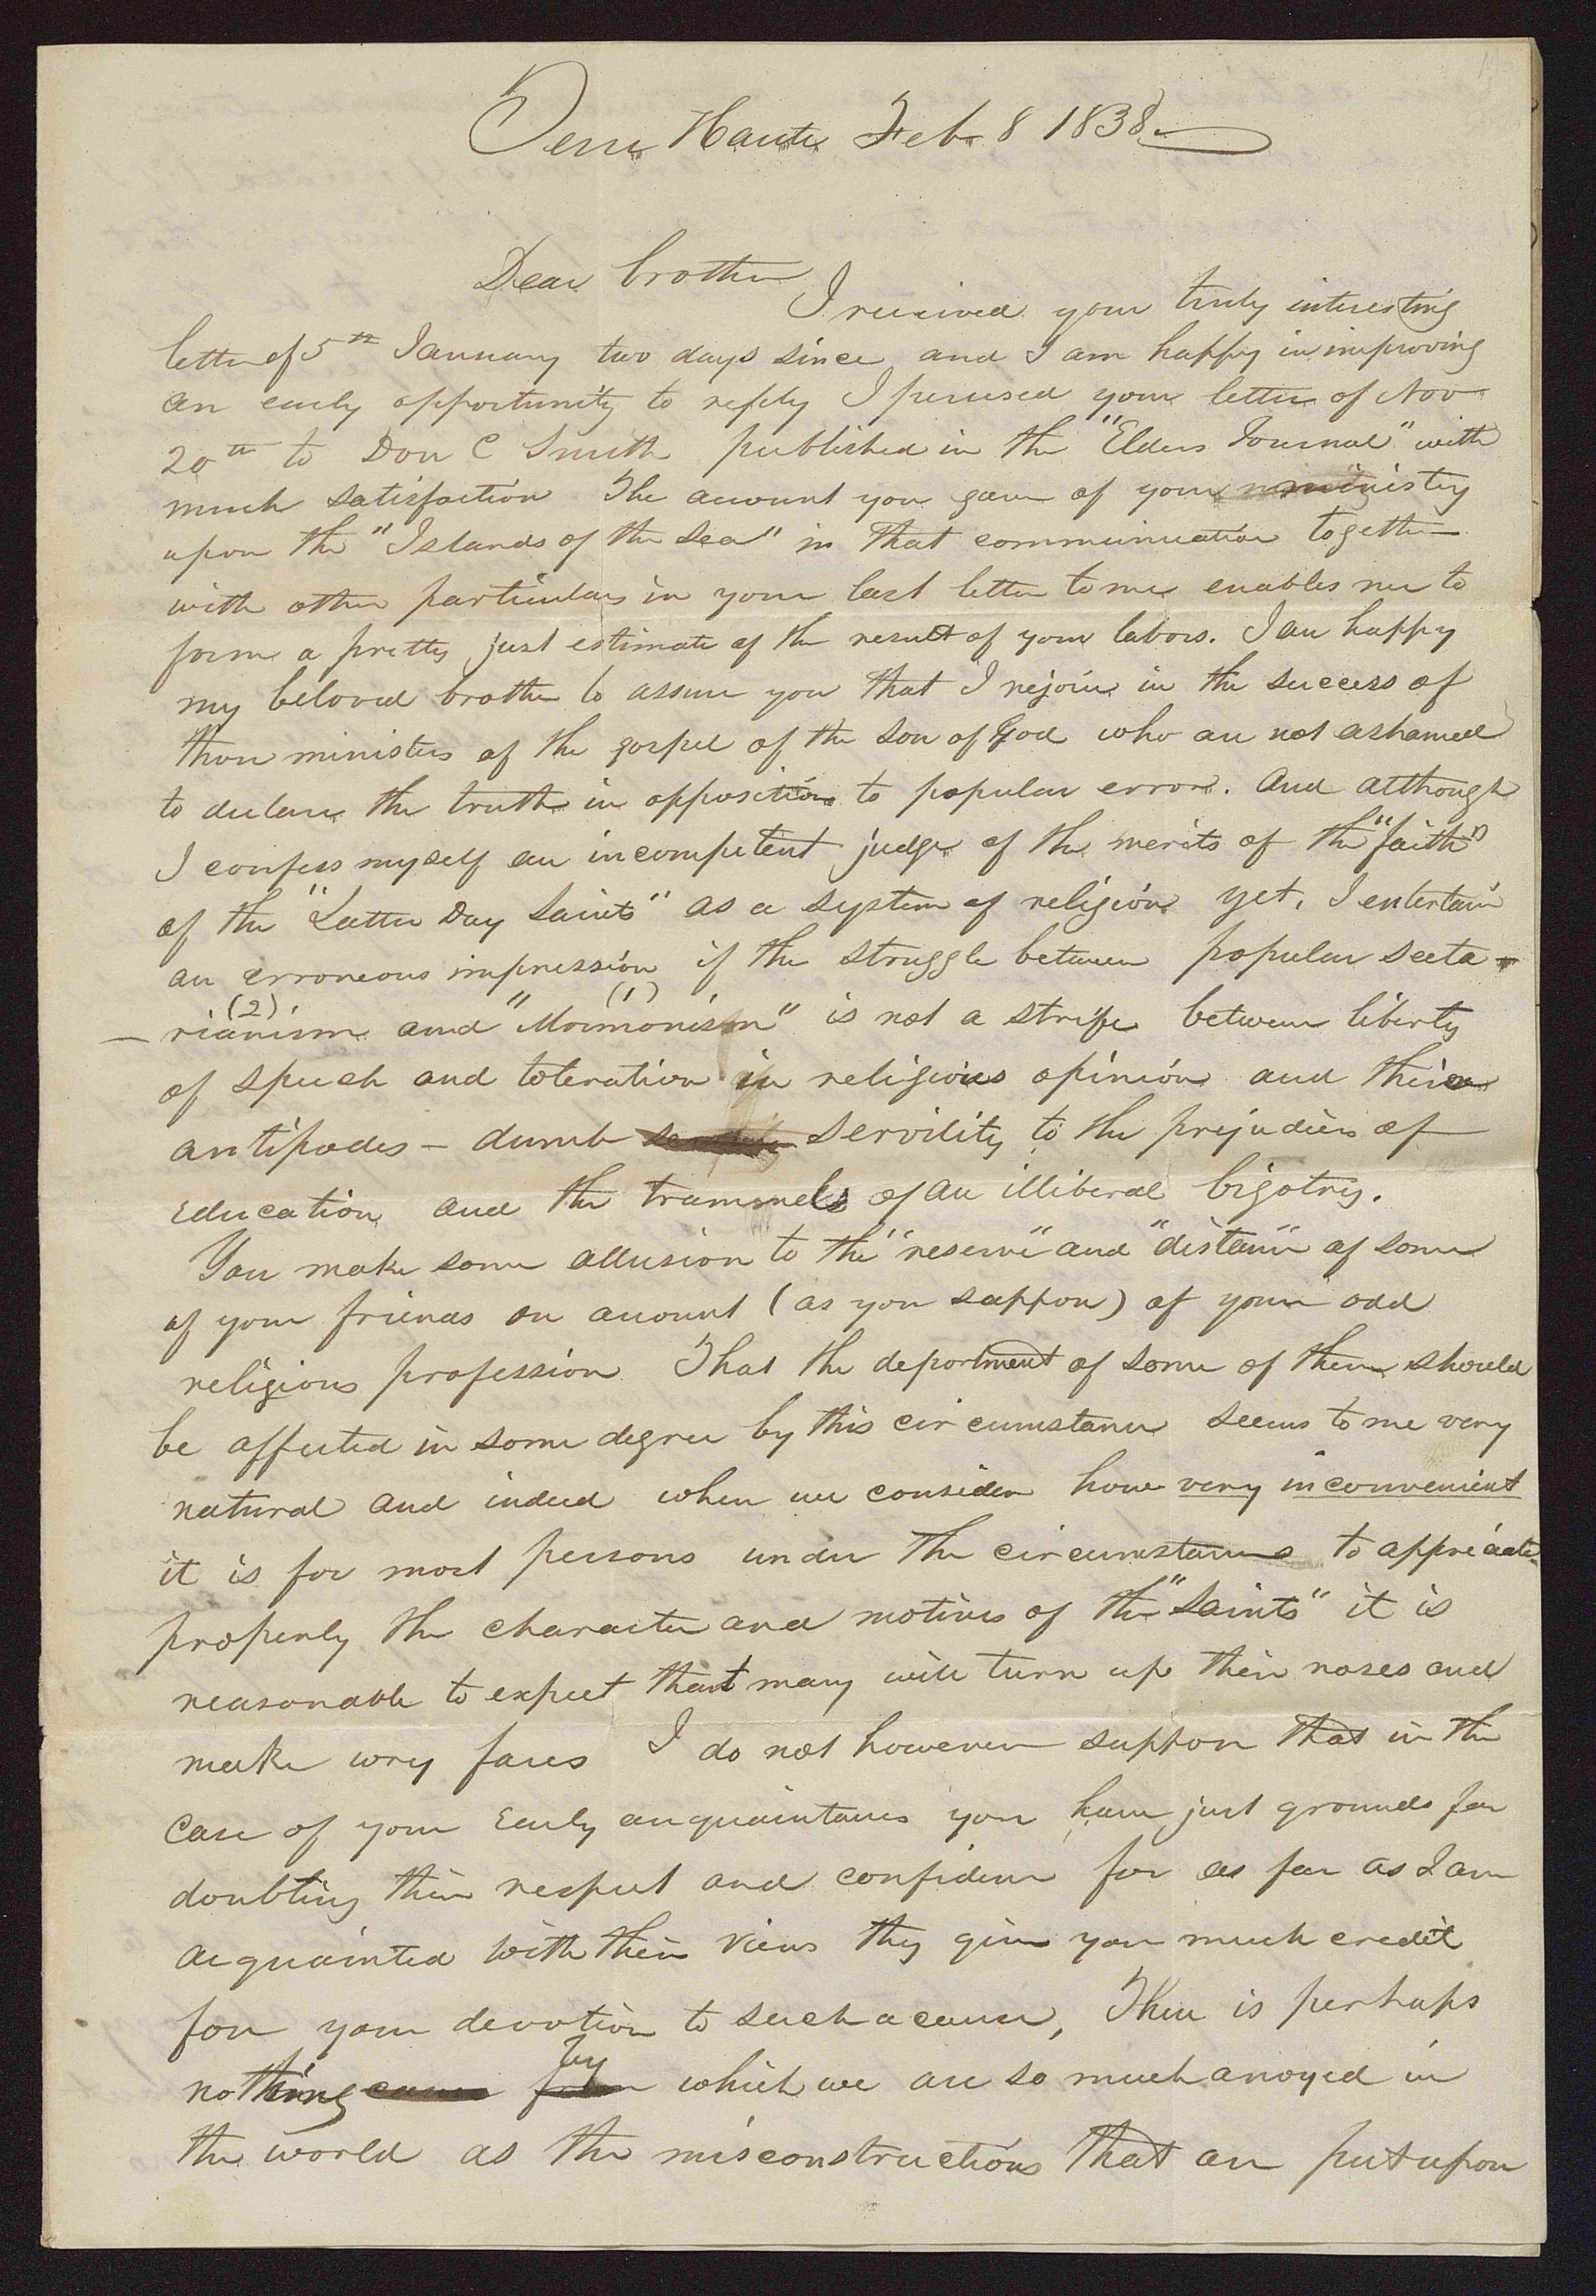 Terre Haute Feb. 8 1838
Dear brother
I received your truly interesting
letter of 5th January two days since and I am happy in improving
an early opportunity to reply I perused your letter of Nov
20th to Don C Smith published in the "Elders Journal" with
much satisfaction The account you gave of your ministry
upon the "Islands of the Sea" in that communication together
with other particulars in your last letter to me enables me to
form a pretty just estimate of the result of your labors. I am happy
my beloved brother to assure you that I rejoice in the success of
those ministers of the gospel of the Son of God who are not ashamed
to declare the truth in opposition to popular error. And although
I confess myself an incompetent judge of the merits of the "faith"
of the "Latter Day Saints" as a system of religion yet, I entertain
an erroneous impression if the struggle between popular secta-
-rianism (2) and "Mormonism" (1) is not a strife between liberty
of speech and toleration in religious opinion and their
antipodes - dumb servility to the prejudices of
Education and the trammels of an illiberal bigotry.
You make some allusion to the "reserve" and "distance" of some
of your friends on account (as you suppose) of your odd
religious profession That the deportment of some of them should
be affected in some degree by this circumstance seems to me very
natural and indeed when we consider how very inconvenient
it is for most persons under the circumstances to appreciate
properly the character and motives of the "Saints" it is
reasonable to expect that many will turn up their noses and
make wry faces I do not however suppose that in the
case of your Early acquaintances you have just grounds for
doubting their respect and confidence for as far as I am
acquainted with their views they give you much credit
for your devotion to such a cause, There is perhaps
nothing by which we are so much anoyed in
the world as the misconstructions that are put upon